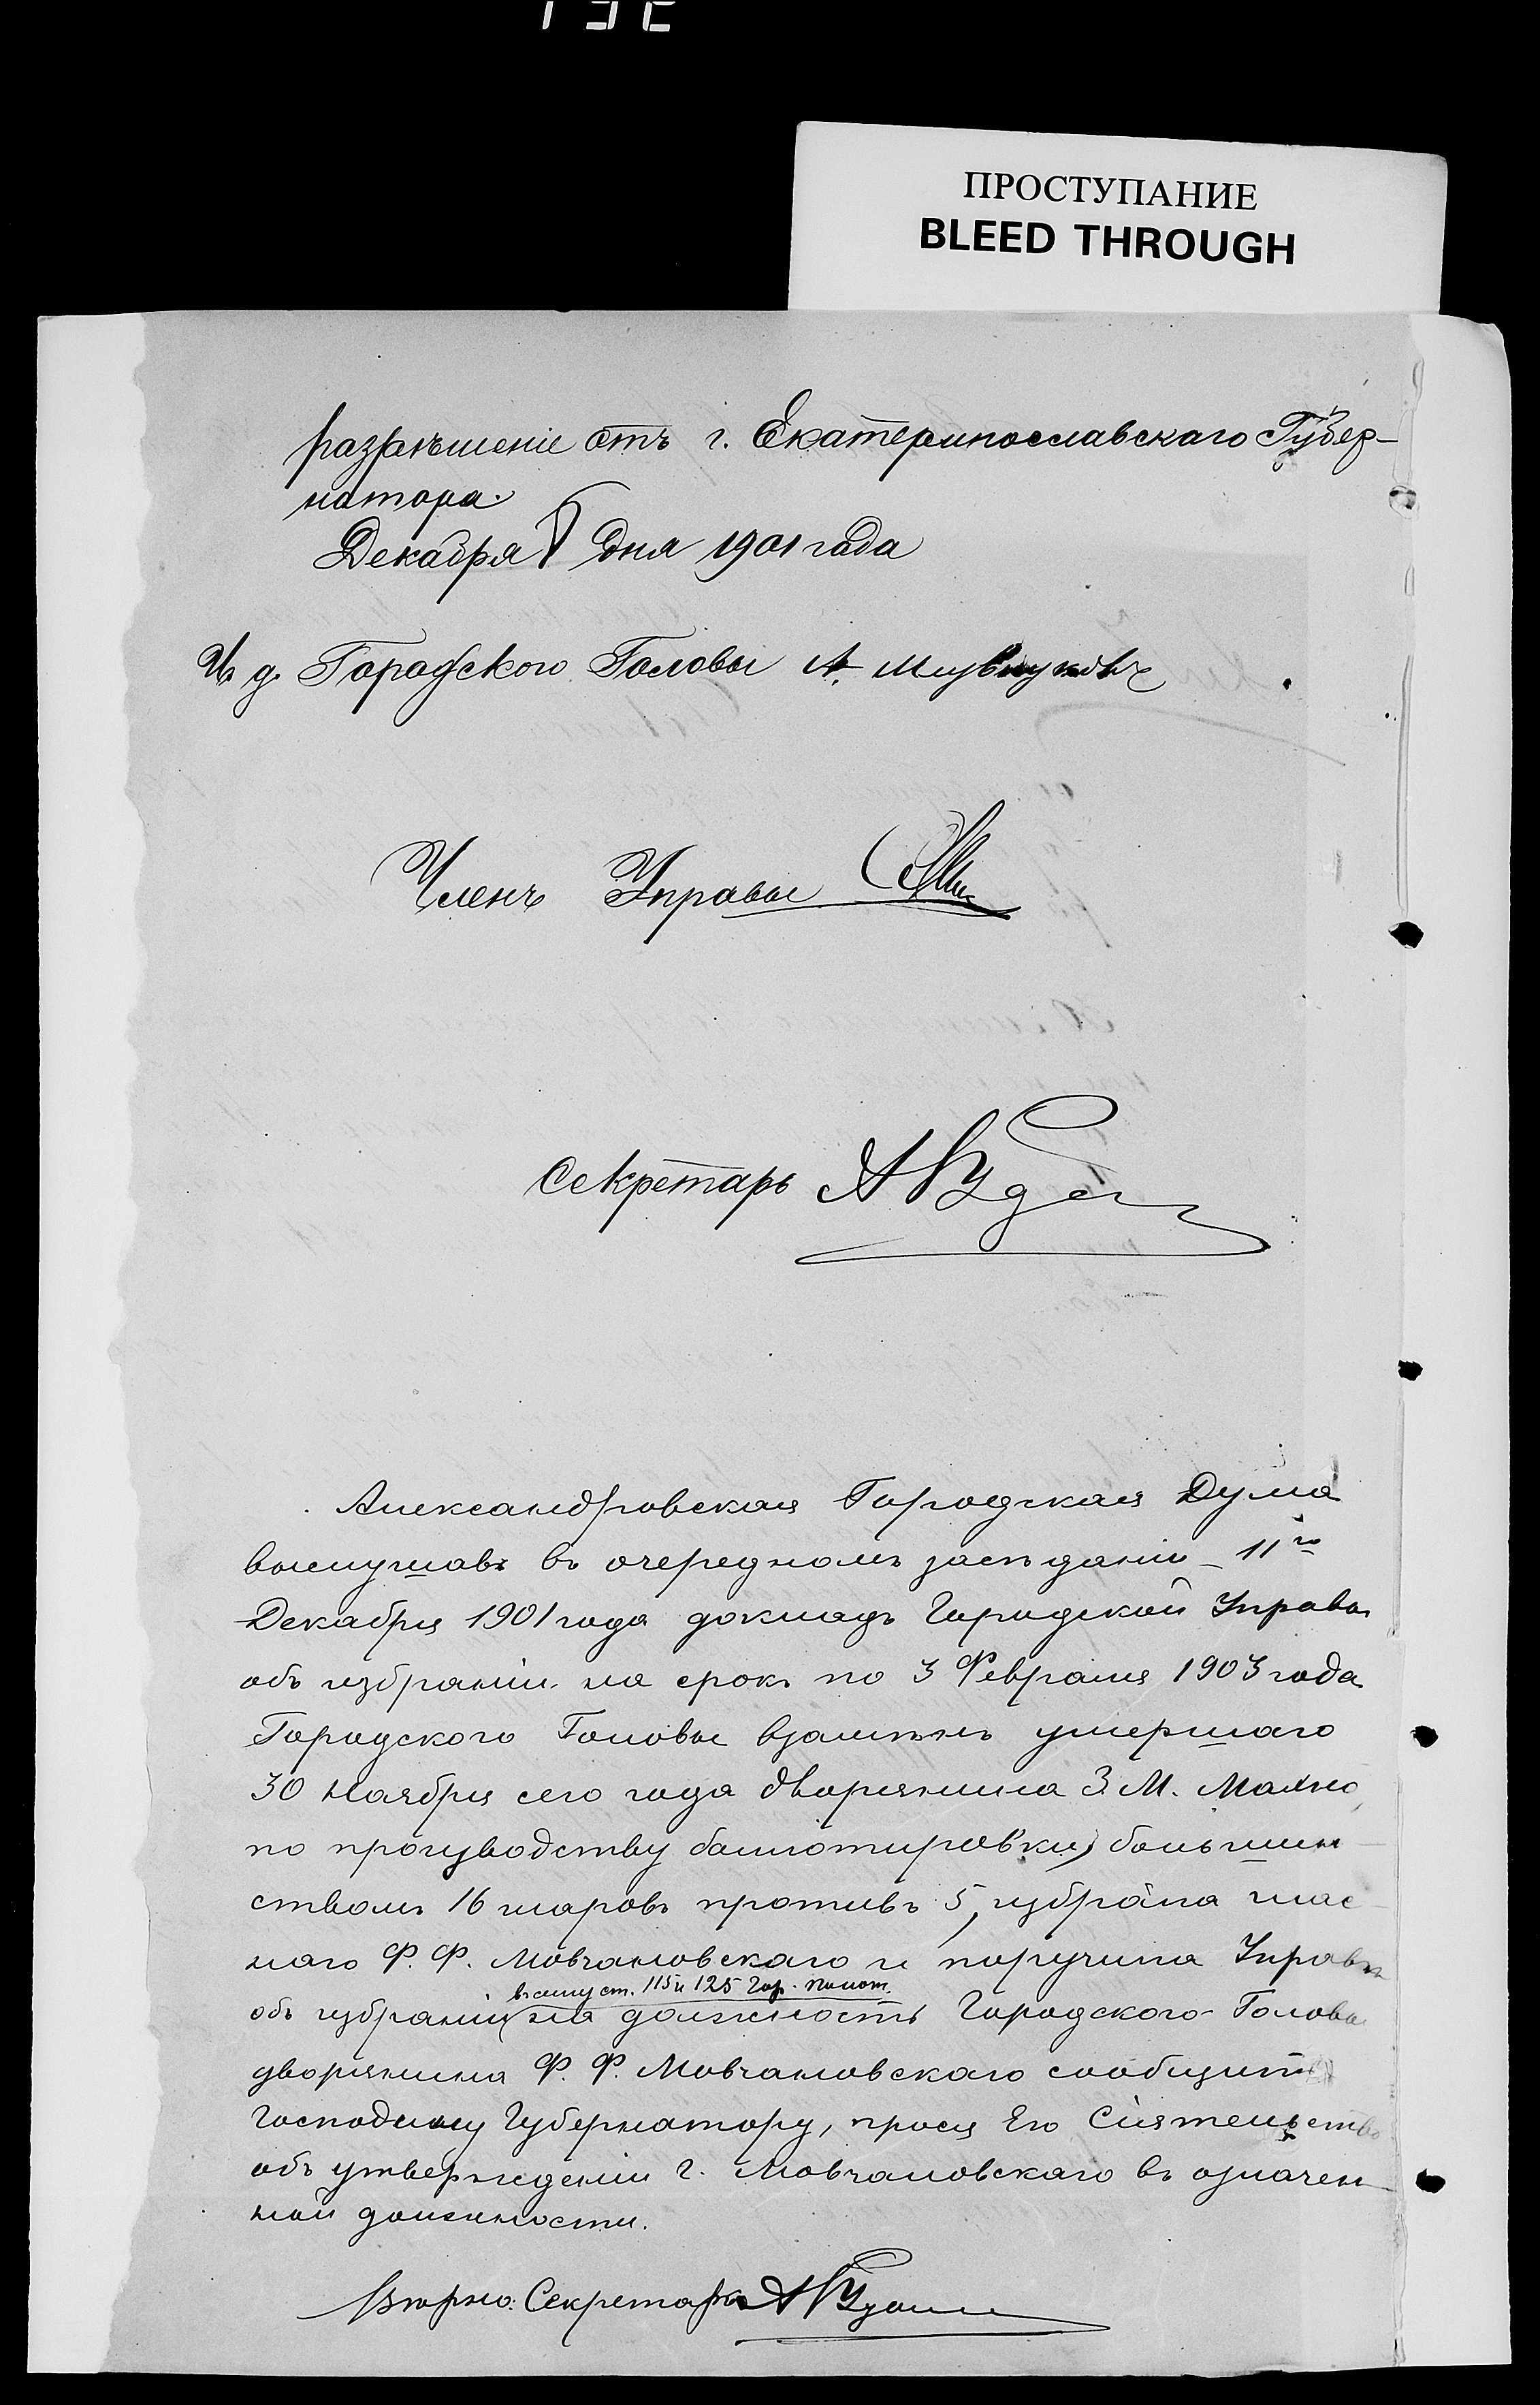 ПРОСТУПАНИЕ
BLEED THROUGH
разрѣшеніе отъ г. Екатеринославскаго Губер-
натора.
Декабря дня 1901 года
И. д. Городского Головы А.
Членъ Управы
Секретарь А
Александровская Городская Дума
выслушавъ въ очередномъ засѣданіи 11го
Декабря 1901 года докладъ Городской Управы
объ избраніи на срокъ по 3 Февраля 1903 года
Городского Головы взамѣнъ умершаго
30 Ноября сего года дворянина З. М. Махно,
по производству баллотировки, большин-
ствомъ 16 шаровъ противъ 5, избрала глас-
наго Ф. Ф. Мовчановскаго и поручила Управѣ
въ силу ст. 115 и 125 Гор. Полож.
объ избраніи на должность Городского Головы
дворянина Ф. Ф. Мовчановскаго сообщить
Господину Губернатору, прося Его Сіятельство
объ утвержденіи г. Мовчановскаго въ означен-
ной должности.
Вѣрно: Секретарь А